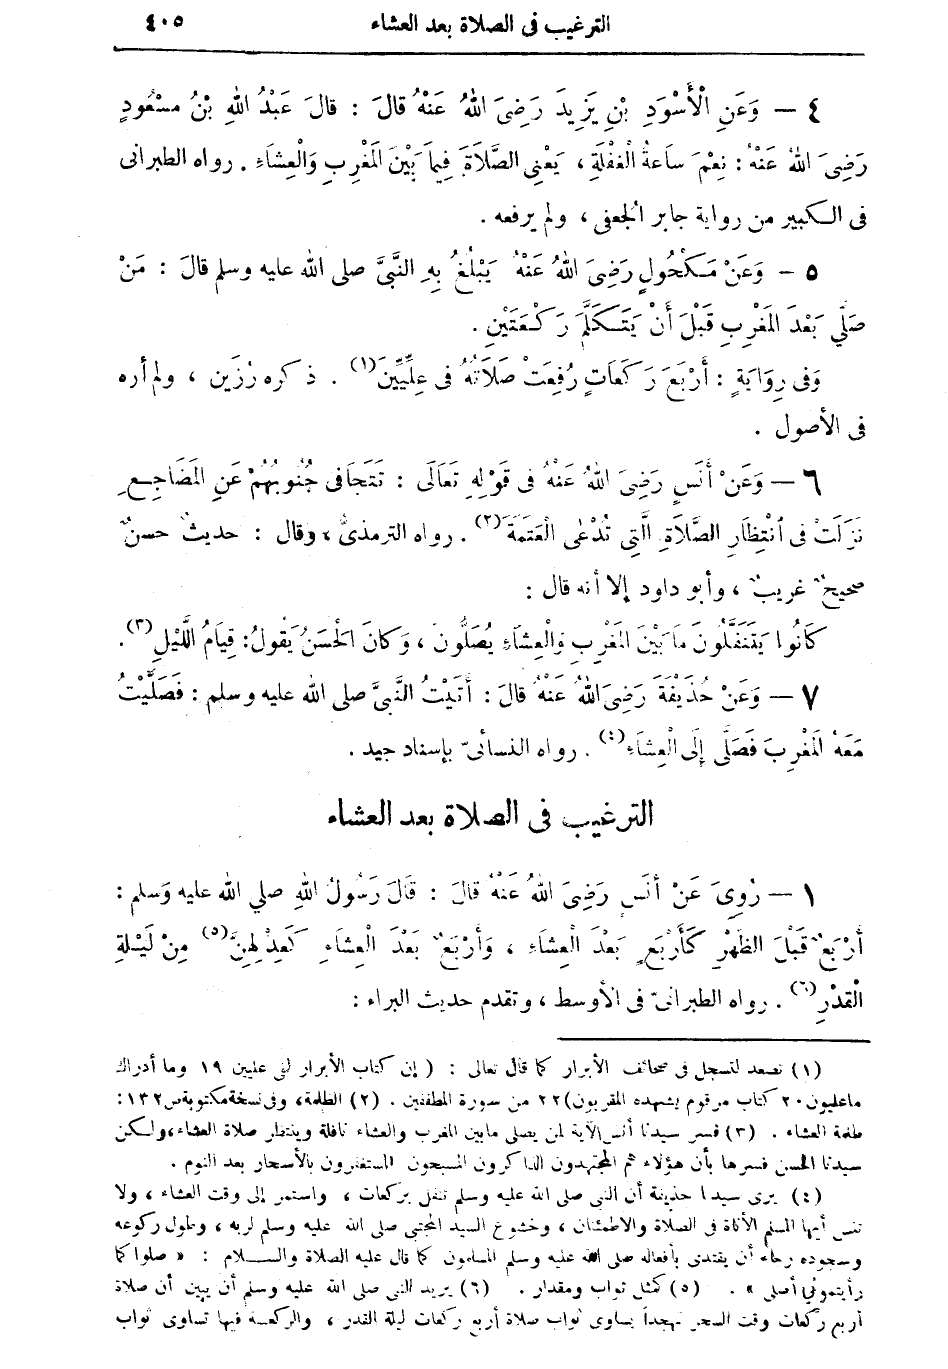 الترغيب فى الصلاة بعد العشاء ٤٠٥
٤ — وَعَنِ الْأَسْوَدِ بْنِ يَزِيدَ رَضِىَ اللهُ عَنْهُ قالَ : قالَ عَبْدُ اللهِ بْنُ مسْعُودٍ
رَضِىَ اللهُ عَنْهُ : نِعْمَ سَاعَةُ الْغفْلَةِ ، يَعْنِى الصَّلَاةَ فِيمَا بَيْنَ المَغْرِبِ وَالْعِشَاءِ . رواه الطبرانى
فى الكبير من رواية جابر الجعفى ، ولم يرفعه .
٥ – وَعَنْ مَكْحُولٍ رَضِىَ اللهُ عَنْهُ يَبْلُغُ بِهِ النَّبىَّ صلى الله عليه وسلم قالَ : مَنْ
صَلَّي بَعْدَ المَغْرِبِ قَبْلَ أَنْ يَتَكَلَّمَ رَكْعَتَيْنِ .
وَفى رِوَايَةٍ : أَرْبَعَ رَكَعَاتٍ رُفِعَتْ صَلَاتُهُ فى عِلِّيِّينَ (١) . ذكره رَزين ، ولم أره
فى الأصول .
٦ — وَعَنْ أَنَسٍ رَضِىَ اللهُ عَنْهُ فى قَوْلِهِ تَعَالَى : تَتَجَافى جُنُوبُهُمْ عَنِ المَضَاجِعِ
نَزَلَتْ فى انْتِظَارِ الصَّلَاةِ الَّتِى تُدْعَى الْعَتَمَةَ (٢) . رواه الترمذىُّ ، وقال : حديثٌ حسنٌ
صحيحٌ غريبٌ ، وأبو داود إلا أنه قال :
كَانُوا يَتَنَفَّلُونَ مَا بَيْنَ المَغْرِبِ وَالْعِشَاءِ يُصَلُّونَ ، وَكَانَ الْحَسَنُ يَقُولُ : قِيَامُ اللَّيْلِ (٣) .
٧ — وَعَنْ حُذَيْفَةَ رَضِىَ اللهُ عَنْهُ قالَ : أَتَيْتُ النَّبىَّ صلى الله عليه وسلم : فَصَلَّيْتُ
مَعَهُ المَغْرِبَ فَصَلَّى إِلَى الْعِشَاءِ (٤) . رواه النسائىّ بإسناد جيد .
الترغيب فى الصلاة بعد العشاء
١ — رُوِىَ عَنْ أَنَسٍ رَضِىَ اللهُ عَنْهُ قالَ : قَالَ رَسُولُ اللهِ صلي الله عليه وَسلم :
أَرْبَعٌ قَبْلَ الظهْرِ كَأَرْبَعٍ بَعْدَ الْعِشَاءِ ، وَأَرْبَعٌ بَعْدَ الْعِشَاءِ كَعِدْلِهِنَّ (٥) مِنْ لَيْلَةِ
الْقَدْرِ (٦) . رواه الطبرانىّ فى الأوسط ، وتقدم حديث البراء :
(١) تصعد لتسجل فى صحائف الأبرار كما قال تعالى : ( إن كتاب الأبرار لفى عليين ١٩ وما أدراك
ماعليون ٢٠ كتاب مرقوم يشهده المقربون) ٢٢ من سورة المطففين . (٢) الظلمة، وفى نسخة مكتوبة ص ١٣٢ :
ظلمة العشاء . (٣) فسر سيدنا أنس الآية لمن يصلى مابين المغرب والعشاء نافلة وينتظر صلاة العشاء، ولكن
سيدنا الحسن فسرها بأن هؤلاء هم المجتهدون الذاكرون المسبحون المستغفرون بالأسحار بعد النوم .
(٤) يرى سيدنا حذيفة أن النبى صلى الله عليه وسلم تنفل بركعات ، واستمر إلى وقت العشاء ، ولا
تنس أيها المسلم الأناة فى الصلاة والاطمئنان ، وخشوع السيد المجتبى صلى الله عليه وسلم لربه ، وطول ركوعه
وسجوده رجاء أن يقتدى بأفعاله صلى الله عليه وسلم المسلمون كما قال عليه الصلاة والسلام : « صلوا كما
رأيتمونى أصلى » . (٥) كمثل ثواب ومقدار . (٦) يريد النبى صلى الله عليه وسلم أن يبين أن صلاة
أربع ركعات وقت السحر تهجداً يساوى ثواب صلاة أربع ركعات ليلة القدر ، والركعة فيها تساوى ثواب